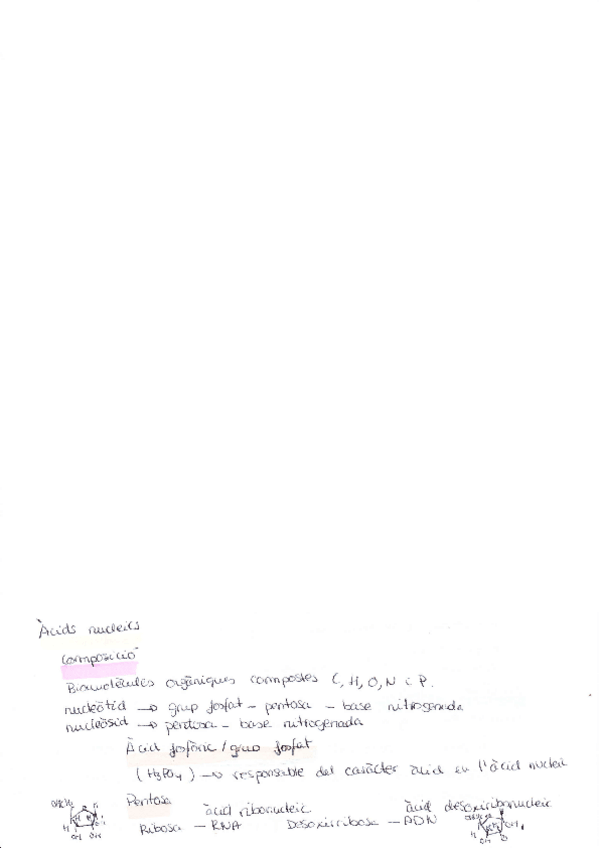 Àcids nucleics
Composició
Biomolècules orgàniques compostes C, H, O, N i P.
nucleòtid → grup fosfat - pentosa - base nitrogenada
nucleòsid → pentosa - base nitrogenada
Àcid fosfòric / grup fosfat
(H3PO4) → responsable del caràcter àcid en l'àcid nucleic
Pentosa
àcid ribonucleic àcid desoxiribonucleic
Ribosa - RNA Desoxirribosa - ADN